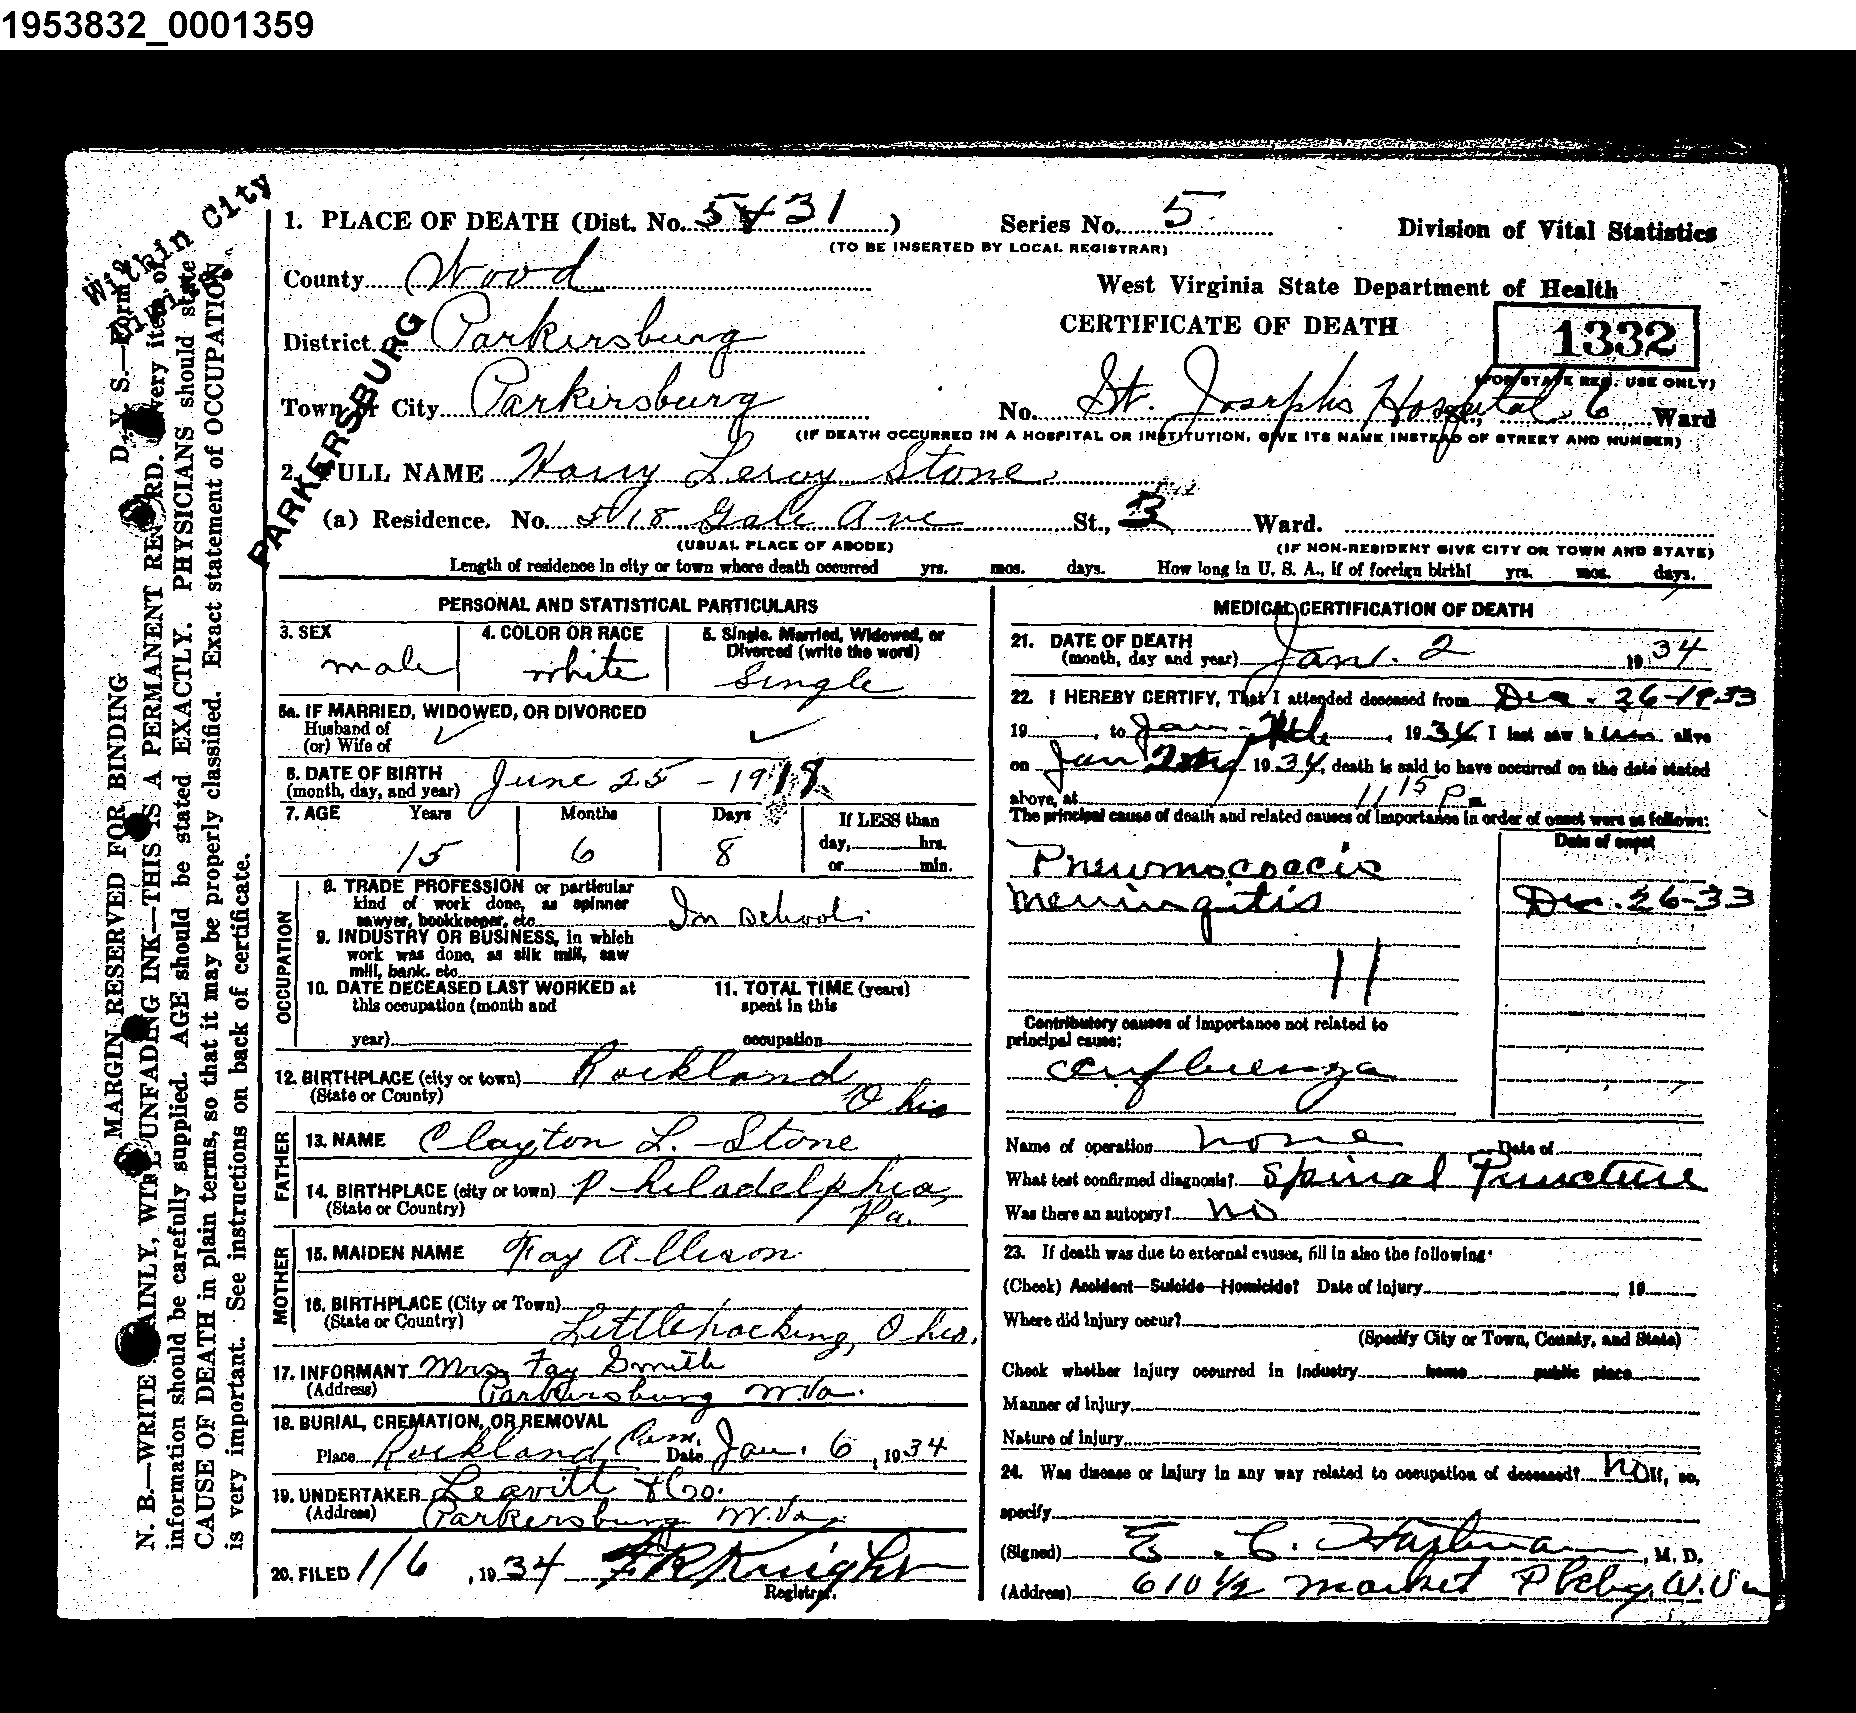 1953832_0001359
Within City
Limits.
D. V. S.—Form
MARGIN RESERVED FOR BINDING
N. B.—WRITE PLAINLY, WITH UNFADING INK—THIS IS A PERMANENT RECORD. Every item of
information should be carefully supplied. AGE should be stated EXACTLY. PHYSICIANS should state
CAUSE OF DEATH in plain terms, so that it may be properly classified. Exact statement of OCCUPATION
is very important. See instructions on back of certificate.
PARKERSBURG
1. PLACE OF DEATH (Dist. No. 5431) Series No. 5 Division of Vital Statistics
(TO BE INSERTED BY LOCAL REGISTRAR)
County Wood West Virginia State Department of Health
District Parkersburg CERTIFICATE OF DEATH 1332
(FOR STATE REG. USE ONLY)
Town or City Parkersburg No. St. Josephs Hospital, 6 Ward
(IF DEATH OCCURRED IN A HOSPITAL OR INSTITUTION, GIVE ITS NAME INSTEAD OF STREET AND NUMBER)
2. FULL NAME Harry Leroy Stone
(a) Residence. No. 518 Gale Ave St., 3 Ward.
(USUAL PLACE OF ABODE) (IF NON-RESIDENT GIVE CITY OR TOWN AND STATE)
Length of residence in city or town where death occurred yrs. mos. days. How long in U. S. A., if of foreign birth? yrs. mos. days.
PERSONAL AND STATISTICAL PARTICULARS
3. SEX 4. COLOR OR RACE 5. Single, Married, Widowed, or
Divorced (write the word)
male white Single
5a. IF MARRIED, WIDOWED, OR DIVORCED
Husband of
(or) Wife of
6. DATE OF BIRTH June 25 - 1918
(month, day, and year)
7. AGE Years Months Days If LESS than
day, hrs.
15 6 8 or min.
OCCUPATION
8. TRADE PROFESSION or particular
kind of work done, as spinner
sawyer, bookkeeper, etc. In school
9. INDUSTRY OR BUSINESS, in which
work was done, as silk mill, saw
mill, bank, etc.
10. DATE DECEASED LAST WORKED at 11. TOTAL TIME (years)
this occupation (month and spent in this
year) occupation
12. BIRTHPLACE (city or town) Rockland
(State or County) Ohio
FATHER
13. NAME Clayton L. Stone
14. BIRTHPLACE (city or town) Philadelphia,
(State or Country) Pa.
MOTHER
15. MAIDEN NAME Fay Allison
16. BIRTHPLACE (City or Town)
(State or Country) Littlehocking, Ohio.
17. INFORMANT Mrs. Fay Smith
(Address) Parkersburg W.Va.
18. BURIAL, CREMATION, OR REMOVAL
Place Rockland Cem. Date Jan. 6, 1934
19. UNDERTAKER Leavitt & Co.
(Address) Parkersburg W.Va.
20. FILED 1/6, 1934 F R Knight
Registrar.
MEDICAL CERTIFICATION OF DEATH
21. DATE OF DEATH
(month, day and year) Jan. 2 1934
22. I HEREBY CERTIFY, That I attended deceased from Dec. 26-1933
19 , to Jan , 1934, I last saw him alive
on Jan 2nd 1934, death is said to have occurred on the date stated
above, at 11 15 P m.
The principal cause of death and related causes of importance in order of onset were as follows:
Date of onset
Pneumococcic
meningitis Dec. 26-33
11
Contributory causes of importance not related to
principal cause:
Influenza
Name of operation none Date of
What test confirmed diagnosis? Spinal Puncture
Was there an autopsy? No
23. If death was due to external causes, fill in also the following:
(Check) Accident—Suicide—Homicide? Date of injury 19
Where did injury occur?
(Specify City or Town, County, and State)
Check whether injury occurred in industry home public place
Manner of injury
Nature of injury
24. Was disease or injury in any way related to occupation of deceased? No If, so,
specify
(Signed) E. C. Hartman, M. D.
(Address) 610 1/2 Market Pkbg, W. Va